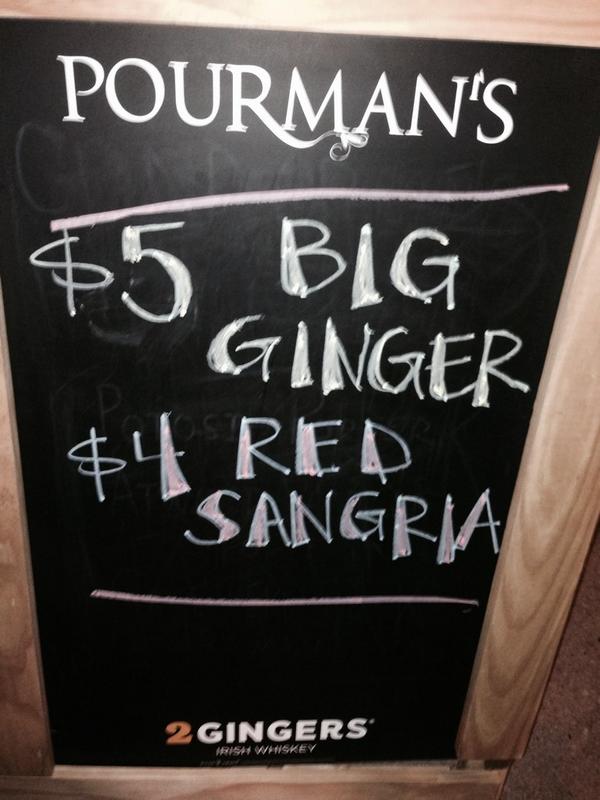 POURMAN'S
$5 BIG
GINGER
$4 RED
SANGRIA
2 GINGERS®
IRISH WHISKEY